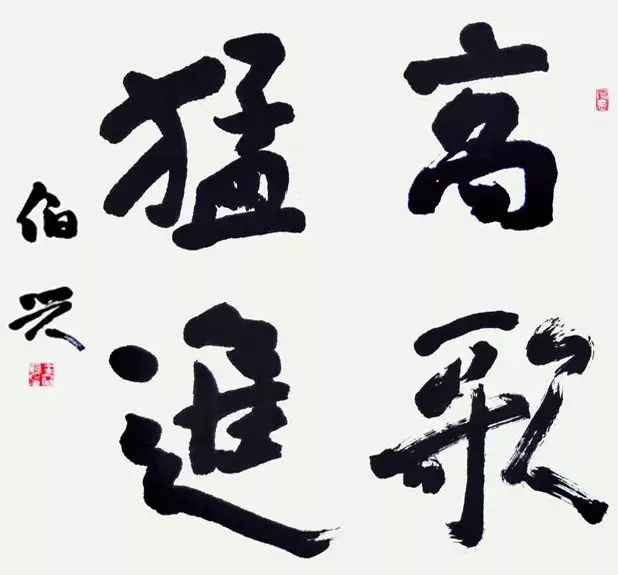 高歌
猛進
伯兴